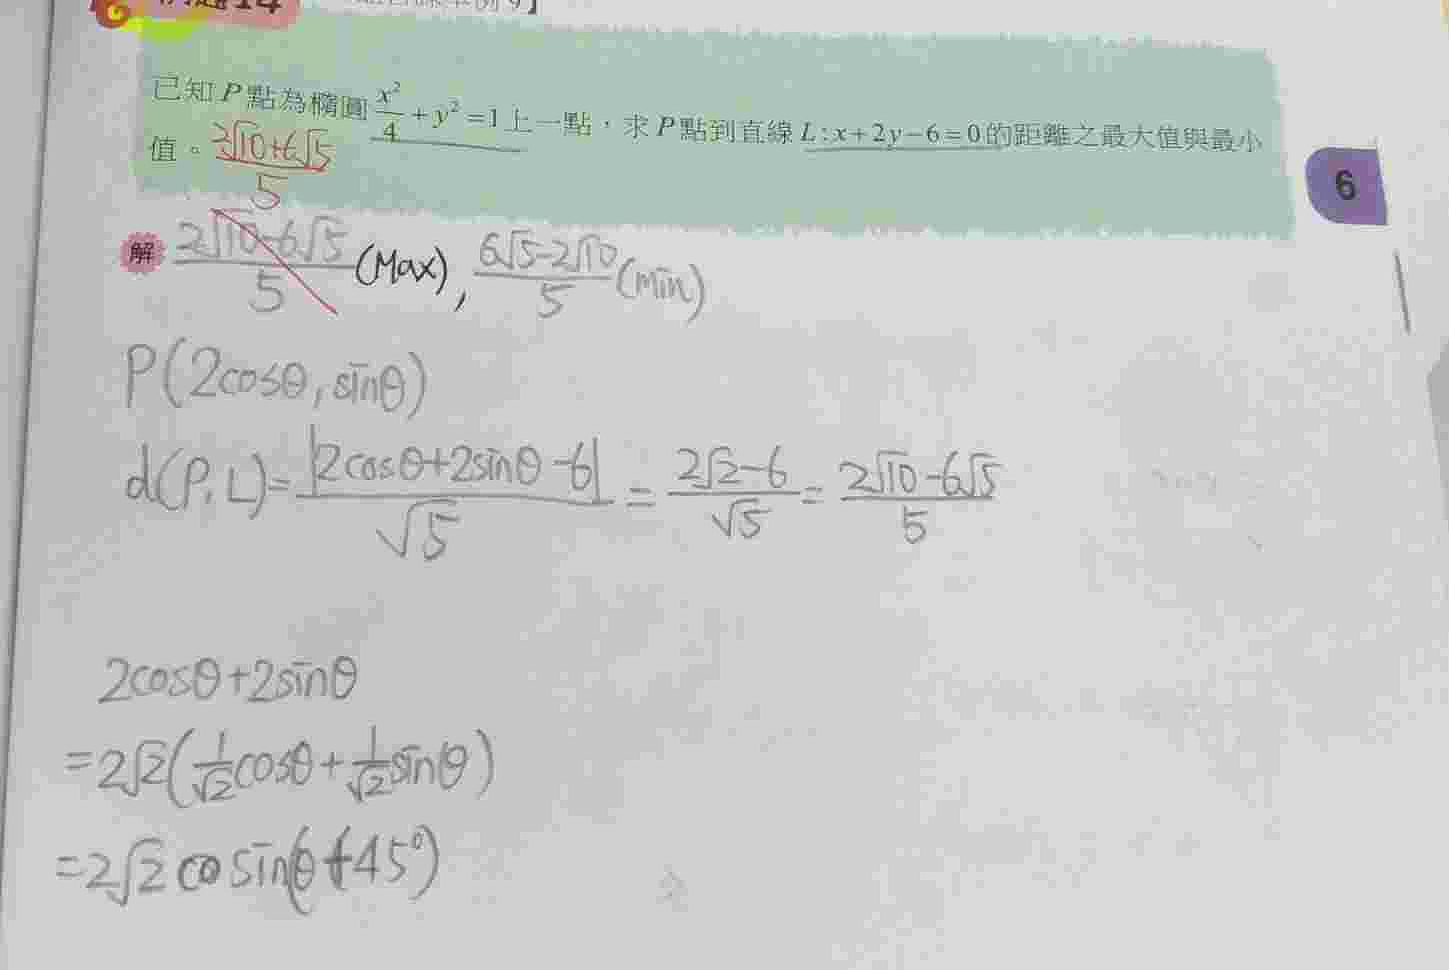 14
已知P點為橢圓 x²/4 + y² = 1上一點，求P點到直線L:x+2y-6=0的距離之最大值與最小
值。 (2√10+6√5)/5
6
解 (2√10-6√5)/5 (Max), (6√5-2√10)/5 (min)
P(2cosθ, sinθ)
d(P,L)= |2cosθ+2sinθ-6|/√5 = (2√2-6)/√5 = (2√10-6√5)/5
2cosθ+2sinθ
=2√2(1/√2 cosθ + 1/√2 sinθ)
=2√2 sin(θ+45°)